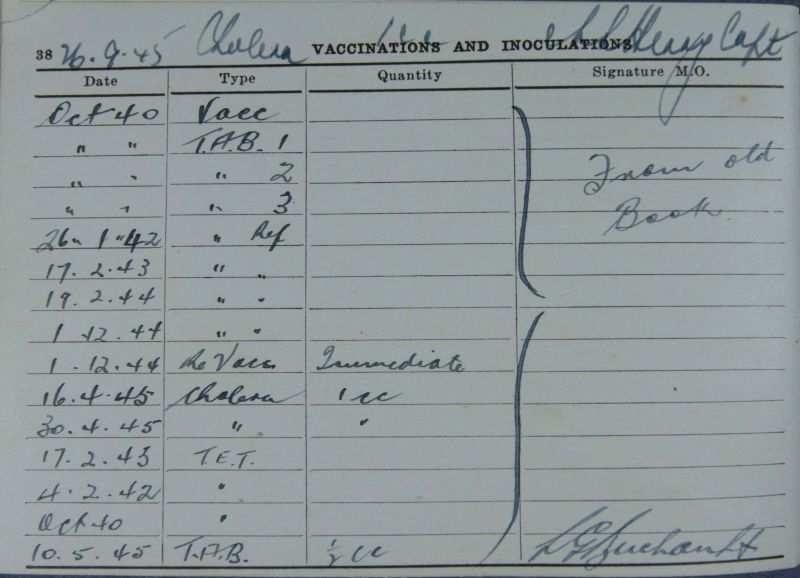 38 VACCINATIONS AND INOCULATIONS
26.9.45 Cholera 1cc Capt
Date Type Quantity Signature M.O.
Oct 40 Vacc
" " T.A.B. 1
" " " 2
" " " 3
26 1 42 " Ref
17.2.43 " "
19.2.44 " "
1 12.44 " "
1.12.44 Re Vacc Immediate
16.4.45 Cholera 1 cc
30.4.45 " "
17.2.43 T.E.T.
4.2.42 "
Oct 40 "
10.5.45 T.A.B. ½ cc
From old
Book